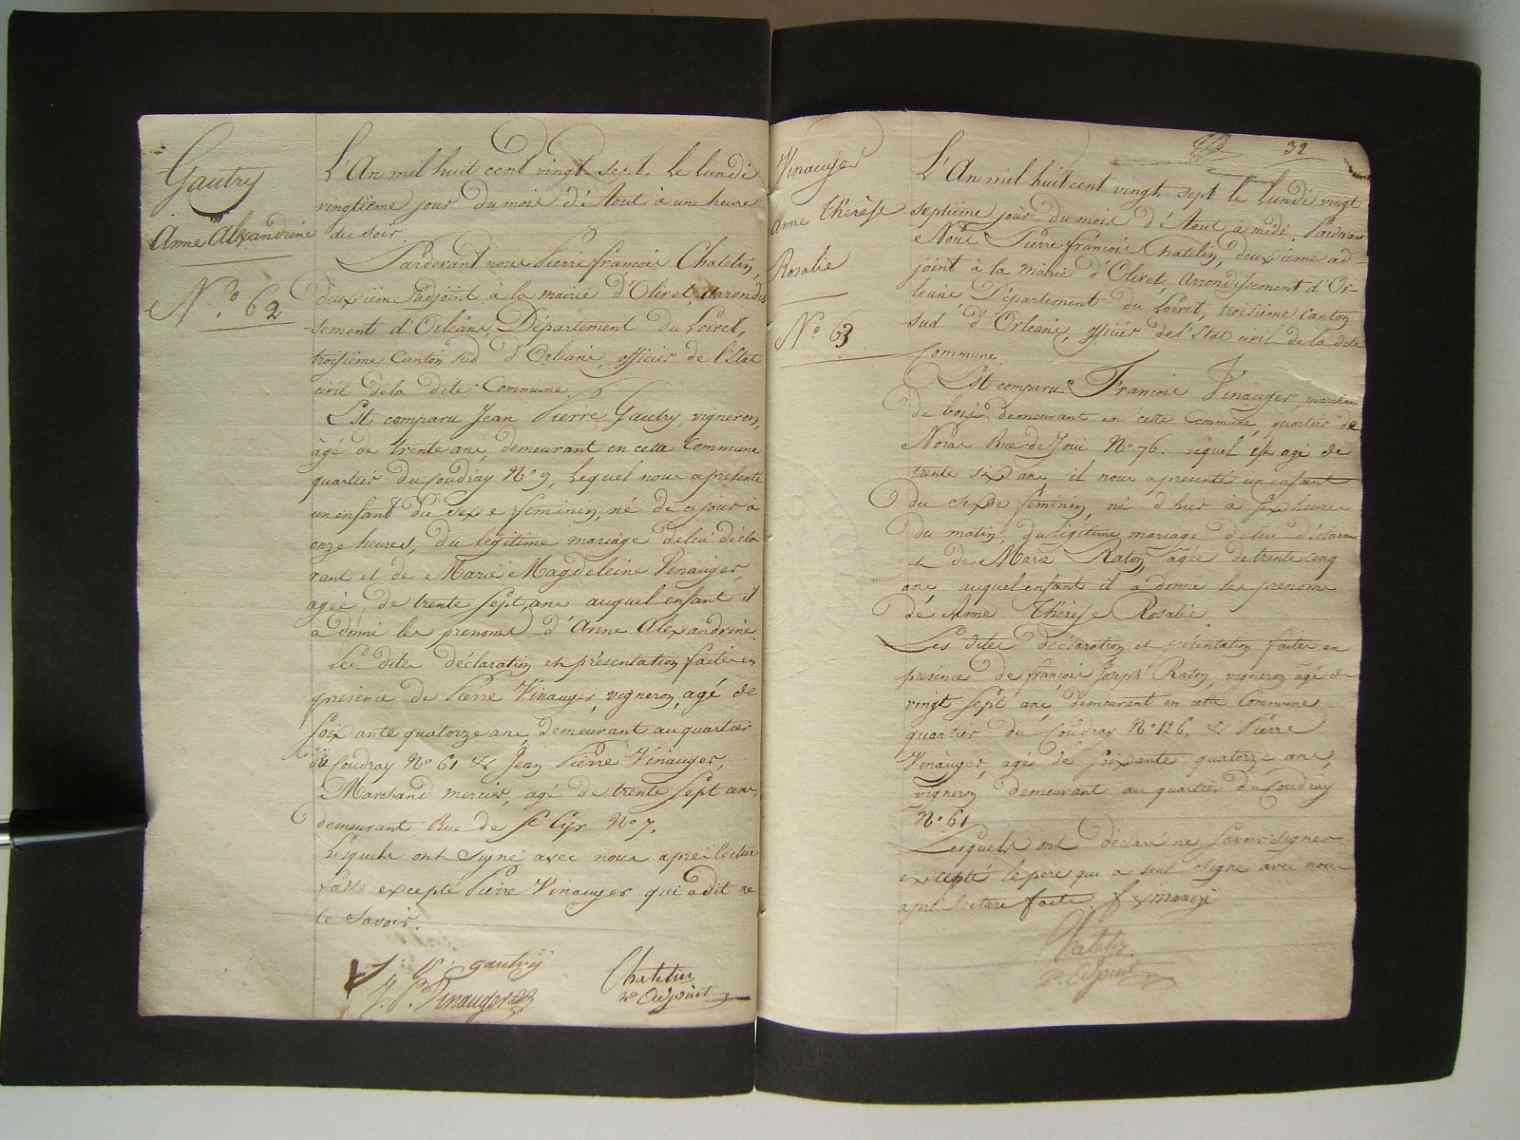 Gautry
Anne Alexandrine
N.º 62
L'An mil huit cent vingt sept. le lundi
vingtieme jour du mois d'Aout à une heure
du soir.
Pardevant nous Pierre francois Chatelin,
deuxieme adjoint à la mairie d'Olivet, arrondis
sement d'Orleans, Département du Loiret,
troisieme Canton sud d'Orleans, officier de l'Etat
civil de la dite Commune.
Est comparu Jean Pierre Gautry, vigneron,
âgé de trente ans, demeurant en cette Commune
quartier du Coudray Nº 9, lequel nous a présenté
un enfant du sexe feminin, né de ce jour à
onze heures, du légitime mariage de lui décla
rant et de Marie Magdeleine Vinauger
agée de trente sept ans auquel enfant il
a donné les prenoms d'Anne Alexandrine.
Les dites déclaration et présentation faites en
presence de Pierre Vinauger, vigneron, agé de
soixante quatorze ans, demeurant au quartier
du Coudray Nº 61 & Jean Pierre Vinauger,
Marchand mercier, agé de trente sept ans,
demeurant Rue de St Cyr Nº 7.
Lesquels ont signé avec nous après lecture
faite excepté Pierre Vinauger qui a dit ne
le savoir.
gautry
J. P. Vinauger
Chatelin
2e Adjoint
32
Vinauger
Anne thérèse
Rosalie
Nº 63
L'An mil huit cent vingt sept le lundi vingt
septieme jour du mois d'Aout a midi. Pardevant
Nous Pierre francois Chatelin, deuxieme ad
joint à la mairie d'Olivet, arrondissement d'Or-
leans Département du Loiret, troisieme Canton
sud d'Orleans, officier de l'Etat civil de la dite
Commune.
Est comparu Francois Vinauger, marchand
de bois demeurant en cette commune, quartier de
Noras Rue de Joui Nº 76. lequel est agé de
trente six ans, il nous a presenté un enfant
du sexe féminin, né d'hier à six heures
du matin, du légitime mariage de lui déclarant
et de Marie Raton, agée de trente cinq
ans, auquel enfant il a donné les prenoms
de Anne Thérèse Rosalie.
Les dites déclaration et présentation faites en
présence de françois Joseph Raton, vigneron agé de
vingt sept ans, demeurant en cette Commune
quartier du Coudray Nº 126. & Pierre
Vinauger, agé de soixante quatorze ans,
vigneron demeurant au quartier du Coudray
Nº 61
Lesquels ont déclaré ne savoir signer
excepté le père qui a seul signé avec nous
après lecture faite.
Chatelin
2e Adjoint